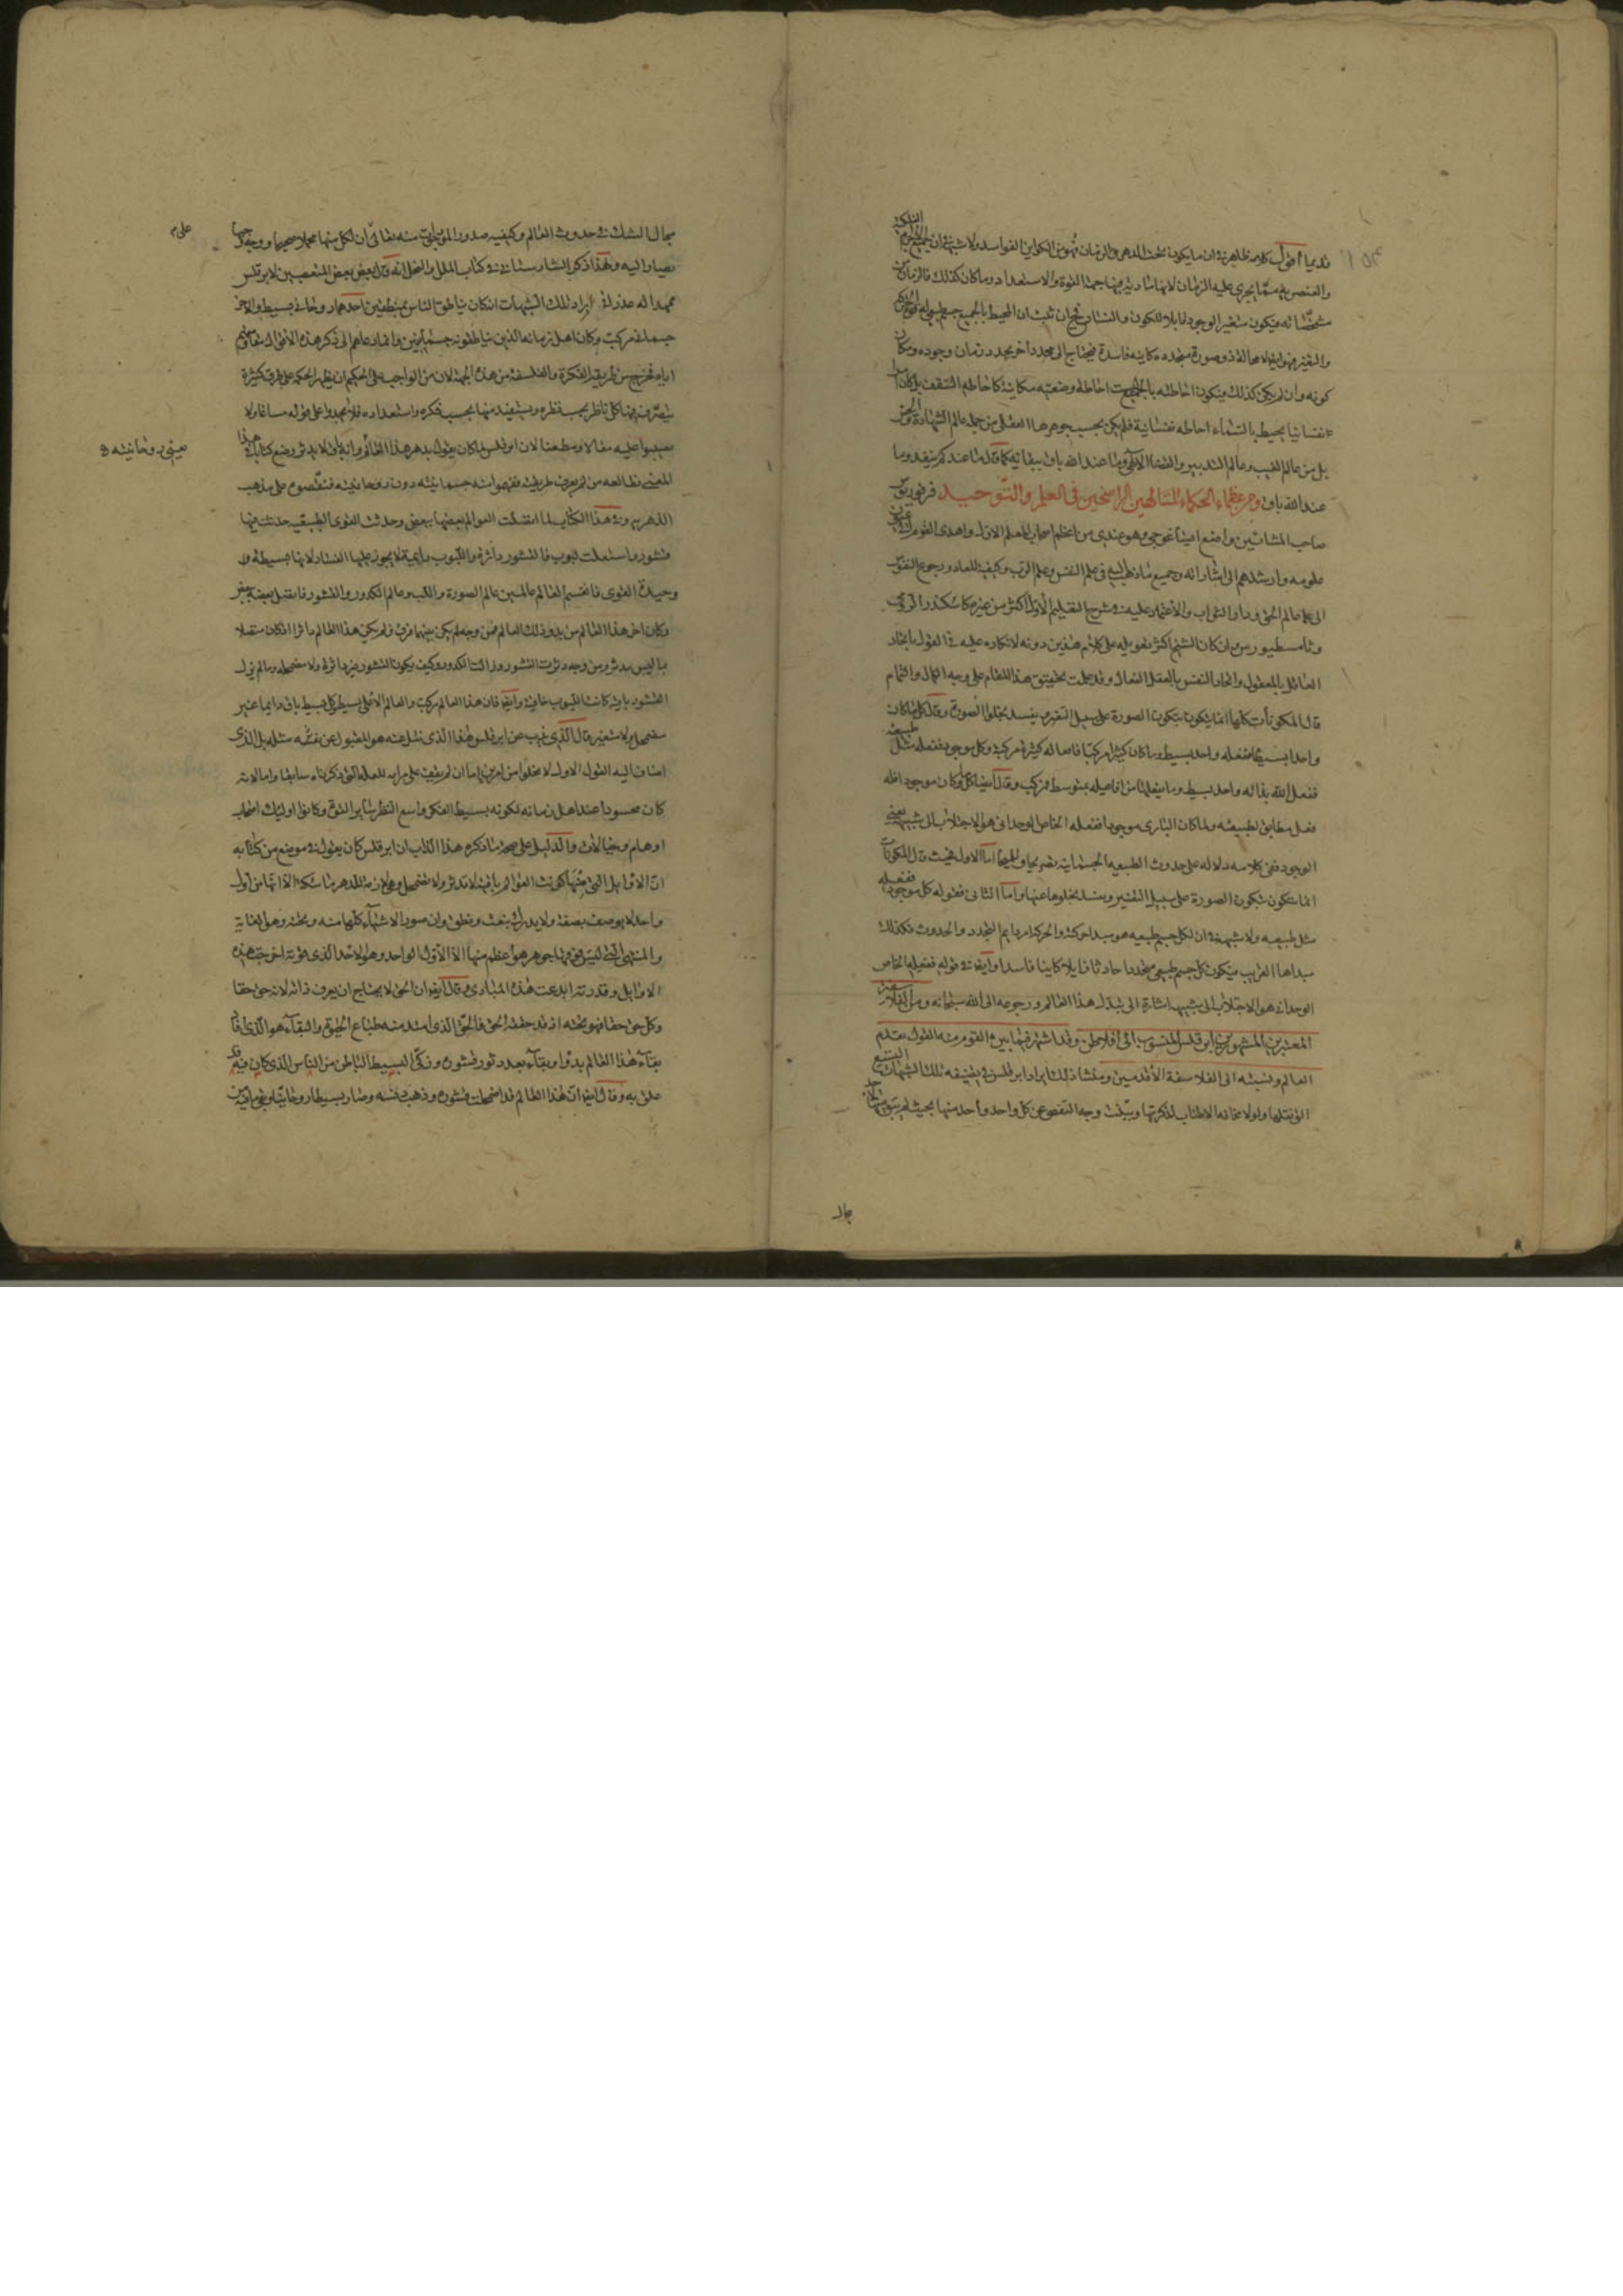 قديما اقول كلامه ظاهر في ان ما يكون تحت الدهر والزمان فهو من الكواين الفواسد ولا شبهة في ان جميع الاجرام الفلكية
والعنصرية مما يجري عليه الزمان لانها شادية فيها جهتا القوة والاستعداد وما كان كذلك فالزمان من
مشخصاته فيكون متغير الوجود قابلا للكون والفساد
والتغير فهو ايضا لا محالة ذو صورة متجددة كاينة فاسدة فيحتاج الى محدد اخر يحدد زمان وجوده ومكان
كونه وان لم يكن كذلك فيكون احاطته بالجميع احاطة وضعية مكانية كاحاطة السقف
نفسانيا يحيط بالسماء احاطة نفسانية فلم يكن بحسب جوهرها العقلي من جملة عالم الشهادة
بل من عالم الغيب وعالم التدبير والقضاء الالهي وما عند الله باق ببقائه كما قال ما عندكم ينفد وما
عند الله باق ومن عظماء الحكماء المتالهين الراسخين في العلم والتوحيد فرفوريوس
صاحب المشائين واضع ايساغوجي وهو عندي من اعظم اصحاب المعلم الاول واهدى القوم الى
علومه وارشدهم الى اشاراته وجميع ما ذهب اليه في علم النفس وعلم الرب وكيفية المعاد ورجوع النفس
الى عالم الحق ودار الثواب والاعتماد عليه في شرح التعليم الاول اكثر من غيره كاسكندر الرومي
وثامسطيوس وان كان الشيخ اكثر تعويله على كلام هذين دونه لانكاره عليه في القول باتحاد
العاقل بالمعقول واتحاد النفس بالعقل الفعال وقد علمت تحقيق هذا المقام على وجه الكمال والتمام
قال المكونات كلها انما يتكون بتكون الصورة على سبيل التغير ويفسد بخلو الصورة وقال كل ما كان
واحدا بسيطا ففعله واحد بسيط وما كان كثيرا مركبا فافعاله كثيرة مركبة وكل موجود ففعله مثل طبيعته
ففعل الله بذاته واحد بسيط وما يفعلها من افاعيله بمتوسط فمركب وقال ايضا كل ما كان موجودا فله
فعل مطابق لطبيعته ولما كان الباري موجودا ففعله الخاص الوحداني هو الاجتلاب الى شبهه يعني
الوجود ففي كلامه دلالة على حدوث الطبيعة الجسمانية تصريحا وتلميحا اما الاول فحيث قال المكونات
انما يتكون بتكون الصورة على سبيل التغير ويفسد بخلوها عنها واما الثاني فقوله كل موجود ففعله
مثل طبيعته ولا شبهة في ان لكل جسم طبيعة هو مبدا حركته والحركة امر دايم التجدد والحدوث فكذلك
مبداها القريب فيكون كل جسم طبيعي متجددا حادثا زايلا كاينا فاسدا وايضا في قوله ففعله الخاص
الوحداني هو الاجتلاب الى شبهه اشارة الى تبدل هذا العالم ورجوعه الى الله سبحانه ومن الفلاسفة
المعتبرين المشهورين ابرقلس المنسوب الى افلاطن وقد اشتهر فيما بين القوم منه القول بقدم
العالم ونسبته الى الفلاسفة الاقدمين ومنشا ذلك ايراد ابرقلس في تصنيفه تلك الشبهات التسع
التي نقلها ولولا مخافة الاطناب لذكرتها وبينت وجه التفصي عن كل واحد واحد منها بحيث لم يبق لاحد
مجال
مجال الشك في حدوث العالم وكيفية صدور الموجودات منه تعالى ان لكل منها محملا صحيحا ووجها
يصار اليه ولهذا ذكر الشهرستاني في كتاب الملل والنحل انه قال بعض المتعصبين لابرقلس
ممهدا له عذرا في ايراد تلك الشبهات انه كان يناطق الناس بمنطقين احدهما روحاني بسيط والاخر
جسماني مركب وكان اهل زمانه الذين يناطقونه جسمانيين وانما دعاهم الى ذكر هذه الاقوال مقاومتهم
اياه فخرج من طريق الفكرة والفلسفة من هذه الجهة لان من الواجب على الحكيم ان يظهر الحكمة على طرق كثيرة
يتصرف فيها كل ناظر بحسب نظره ويستفيد منها بحسب فكره واستعداده فلا يجدوا على قوله مساغا ولا
يصيبوا عليه مقالا ومطعنا لان ابرقلس لما كان يقول بدهر هذا العالم وانه باق لا يدثر وضع كتابا في هذا
المعنى فطالعه من لم يعرف طريقته ففهموا منه جسمانيته دون روحانيته فنقضوه على مذهب
الدهرية وفي هذا الكتاب لما اتصلت العوالم بعضها ببعض وحدثت القوى الطبيعية حدثت فيها
قشور واستبطنت لبوب فالقشور داثرة واللبوب دايمة لا يجوز عليها الفساد لانها بسيطة
وحيدة القوى فانقسم العالم عالمين عالم الصورة واللب وعالم الكدور والقشور فاتصل بعضه ببعض
وكان اخر هذا العالم من بدو ذلك العالم فمن وجه لم يكن بينهما فرق فلم يكن هذا العالم داثرا اذ كان متصلا
بما ليس يدثر ومن وجه دثرت القشور وزالت الكدور وكيف يكون القشور غير داثرة ولا مضمحلة وما لم يزل
القشور باقية كانت اللبوب خافية وايضا فان هذا العالم مركب والعالم الاعلى بسيط وكل بسيط باق دايما غير
مضمحل ولا متغير قال الذي يذب عن ابرقلس هذا الذي نقل عنه هو المقبول عن مثله بل الذي
اضاف اليه القول الاول لا يخلو من امرين اما ان لم يقف على مرامه للعلة التي ذكرناه سابقا واما لانه
كان محسودا عند اهل زمانه لكونه بسيط الفكر واسع النظر ساير القوى وكانوا اوليك اصحاب
اوهام وخيالات والدليل على صحة ما ذكره هذا الذاب ان ابرقلس كان يقول في موضع من كتابه
ان الاوايل التي منها تكونت العوالم باقية لا تدثر ولا تضمحل وهي لازمة الدهر ماسكة له الا انها من اول
واحد لا يوصف بصفة ولا يدرك بنعت ونطق وان صور الاشياء كلها منه وتحته وهو الغاية
والمنتهى التي ليس فوقها جوهر هو اعظم منها الا الاول الواحد وهو الاحد الذي قوته اخرجت هذه
الاوايل وقدرته ابدعت هذه المبادي وقال ايضا ان الحق لا يحتاج ان يعرف ذاته لانه حق حقا
وكل حق حقا فهو تحته اذ قد حققه الحق فالحق الذي امتد منه طباع الحيوة والبقاء هو الذي افاد
بقاء هذا العالم بدوا وبقاء بعد دثور قشوره وزكى البسيط الباطن من الدنس الذي كان فيه قد
علق به وقال ايضا ان هذا العالم قد اضمحلت قشوره وذهب دنسه وصار بسيطا روحانيا وبقي ما فيه من
يعني روحانيته